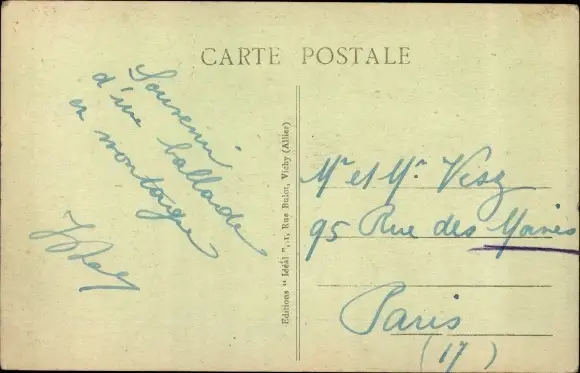 CARTE POSTALE
Souvenir
d'une ballade
en montagne
Editions "Idéal", 1, Rue Bulot, Vichy (Allier)
Mr et Mr.
95 Rue des Moines
Paris
(17)